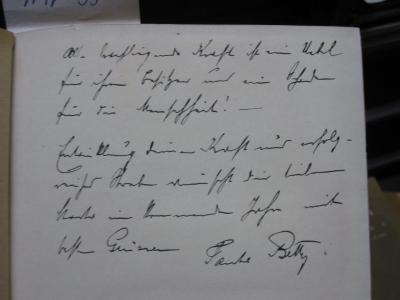 brachliegende Kraft ist ein Übel
für ihren Besitzer und ein Schaden
für die Menschheit! —
Entwicklung deiner Kraft und erfolg-
reiches Streben wünscht dir
im kommenden Jahre mit
besten Grüssen Tante Betty.